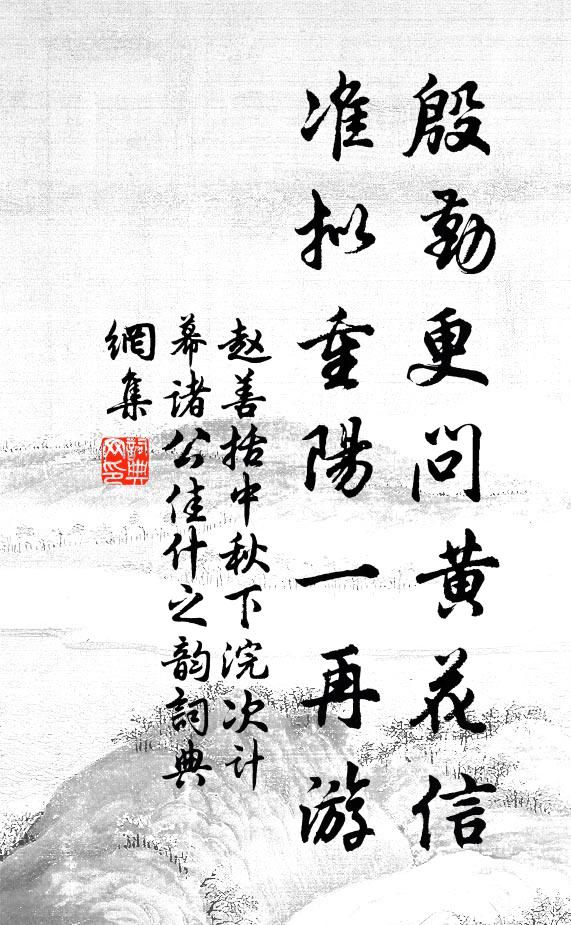 殷勤更问黄花信
准拟重陽一再游
赵善括中秋下浣次计
幕诸公佳什之韵詞典
網集
詞典
网印